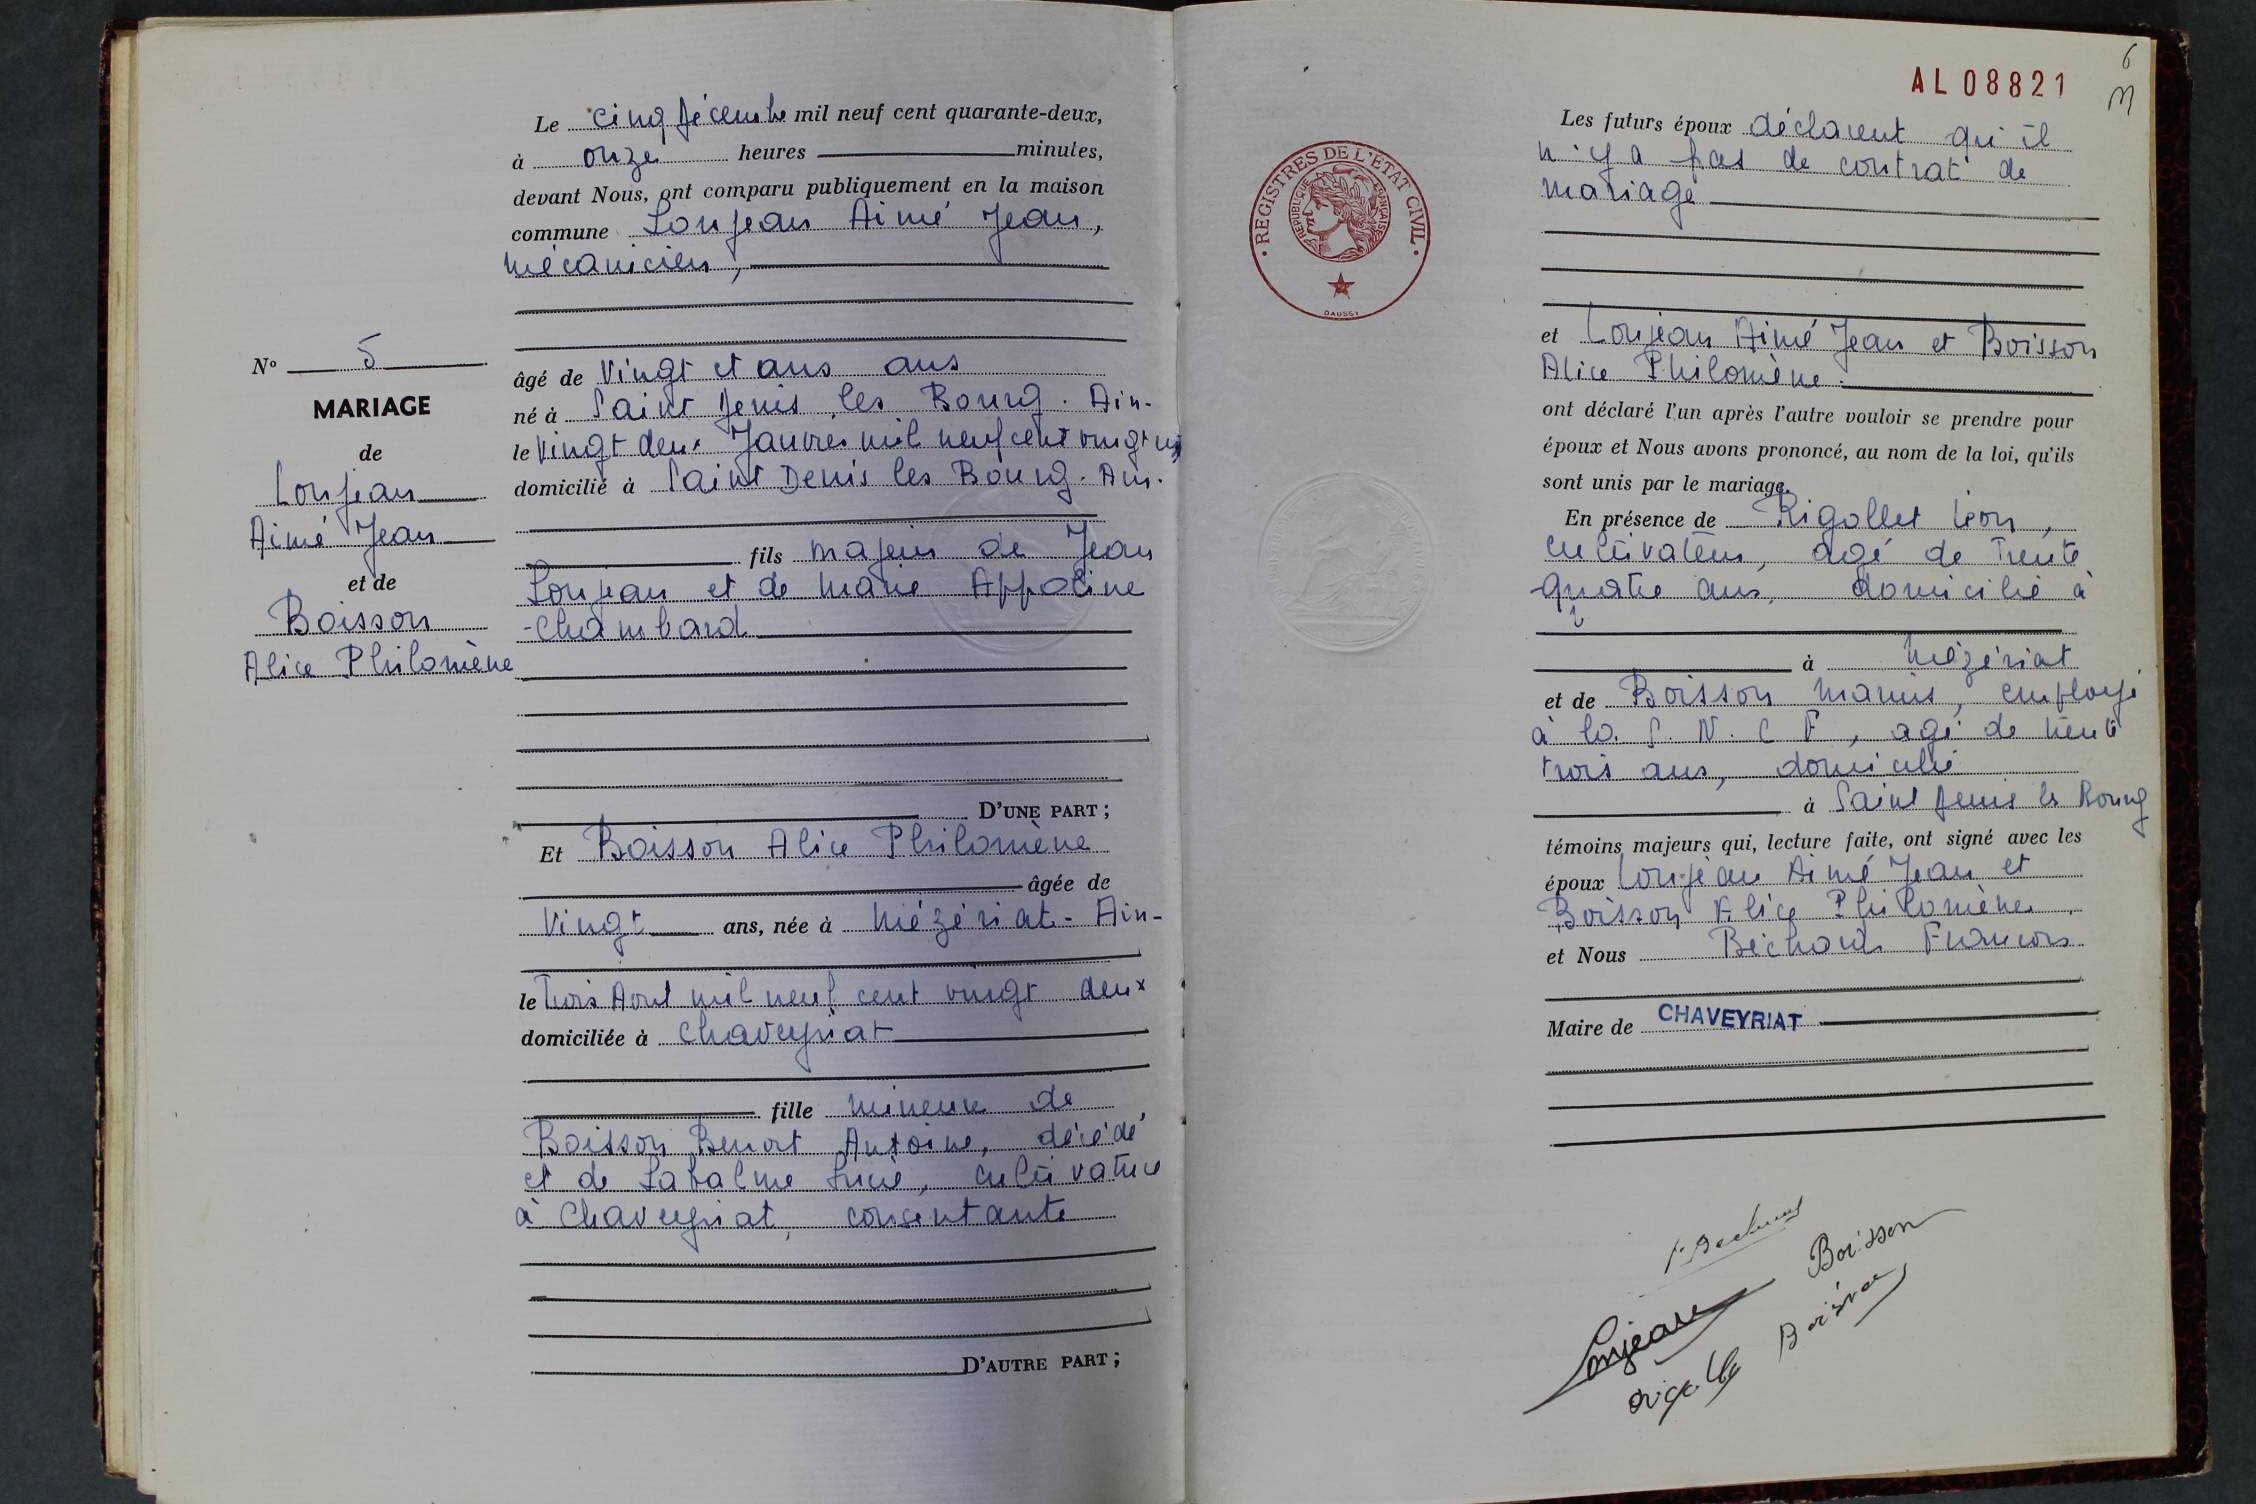 Le cinq décembre mil neuf cent quarante-deux,
à onze heures minutes,
devant Nous, ont comparu publiquement en la maison
commune Lonjean Aimé Jean,
mécanicien,
âgé de vingt et ans ans
né à Saint Denis les Bourg. Ain-
le vingt deux Janvier mil neuf cent vingt un
domicilié à Saint Denis les Bourg. Ain.
fils majeur de Jean
Lonjean et de Marie Appoline
Chambard
D'UNE PART ;
Nº 5
MARIAGE
de
Lonjean
Aimé Jean
et de
Boisson
Alice Philomène
Et Boisson Alice Philomène
âgée de
Vingt ans, née à Mézériat - Ain-
le Trois Aout mil neuf cent vingt deux
domiciliée à Chaveyriat
fille mineure de
Boisson Benoit Antoine, décédé
et de Labalme Lucie, cultivatrice
à Chaveyriat, consentante
D'AUTRE PART ;
6
AL 08821
Les futurs époux déclarent qu'il
n'y a pas de contrat de
mariage
REGISTRES DE L'ÉTAT CIVIL
RÉPUBLIQUE FRANÇAISE
DAUSSY
et Lonjean Aimé Jean et Boisson
Alice Philomène.
ont déclaré l'un après l'autre vouloir se prendre pour
époux et Nous avons prononcé, au nom de la loi, qu'ils
sont unis par le mariage.
En présence de Rigollet Léon,
cultivateur, agé de trente
quatre ans, domicilié à
à Mézériat
et de Boisson Marius, employé
à la S. N. C F, agé de trente
trois ans, domicilié
à Saint Denis les Bourg
témoins majeurs qui, lecture faite, ont signé avec les
époux Lonjean Aimé Jean et
Boisson Alice Philomène
et Nous Béchard Francois
Maire de CHAVEYRIAT
Boisson
Lonjean